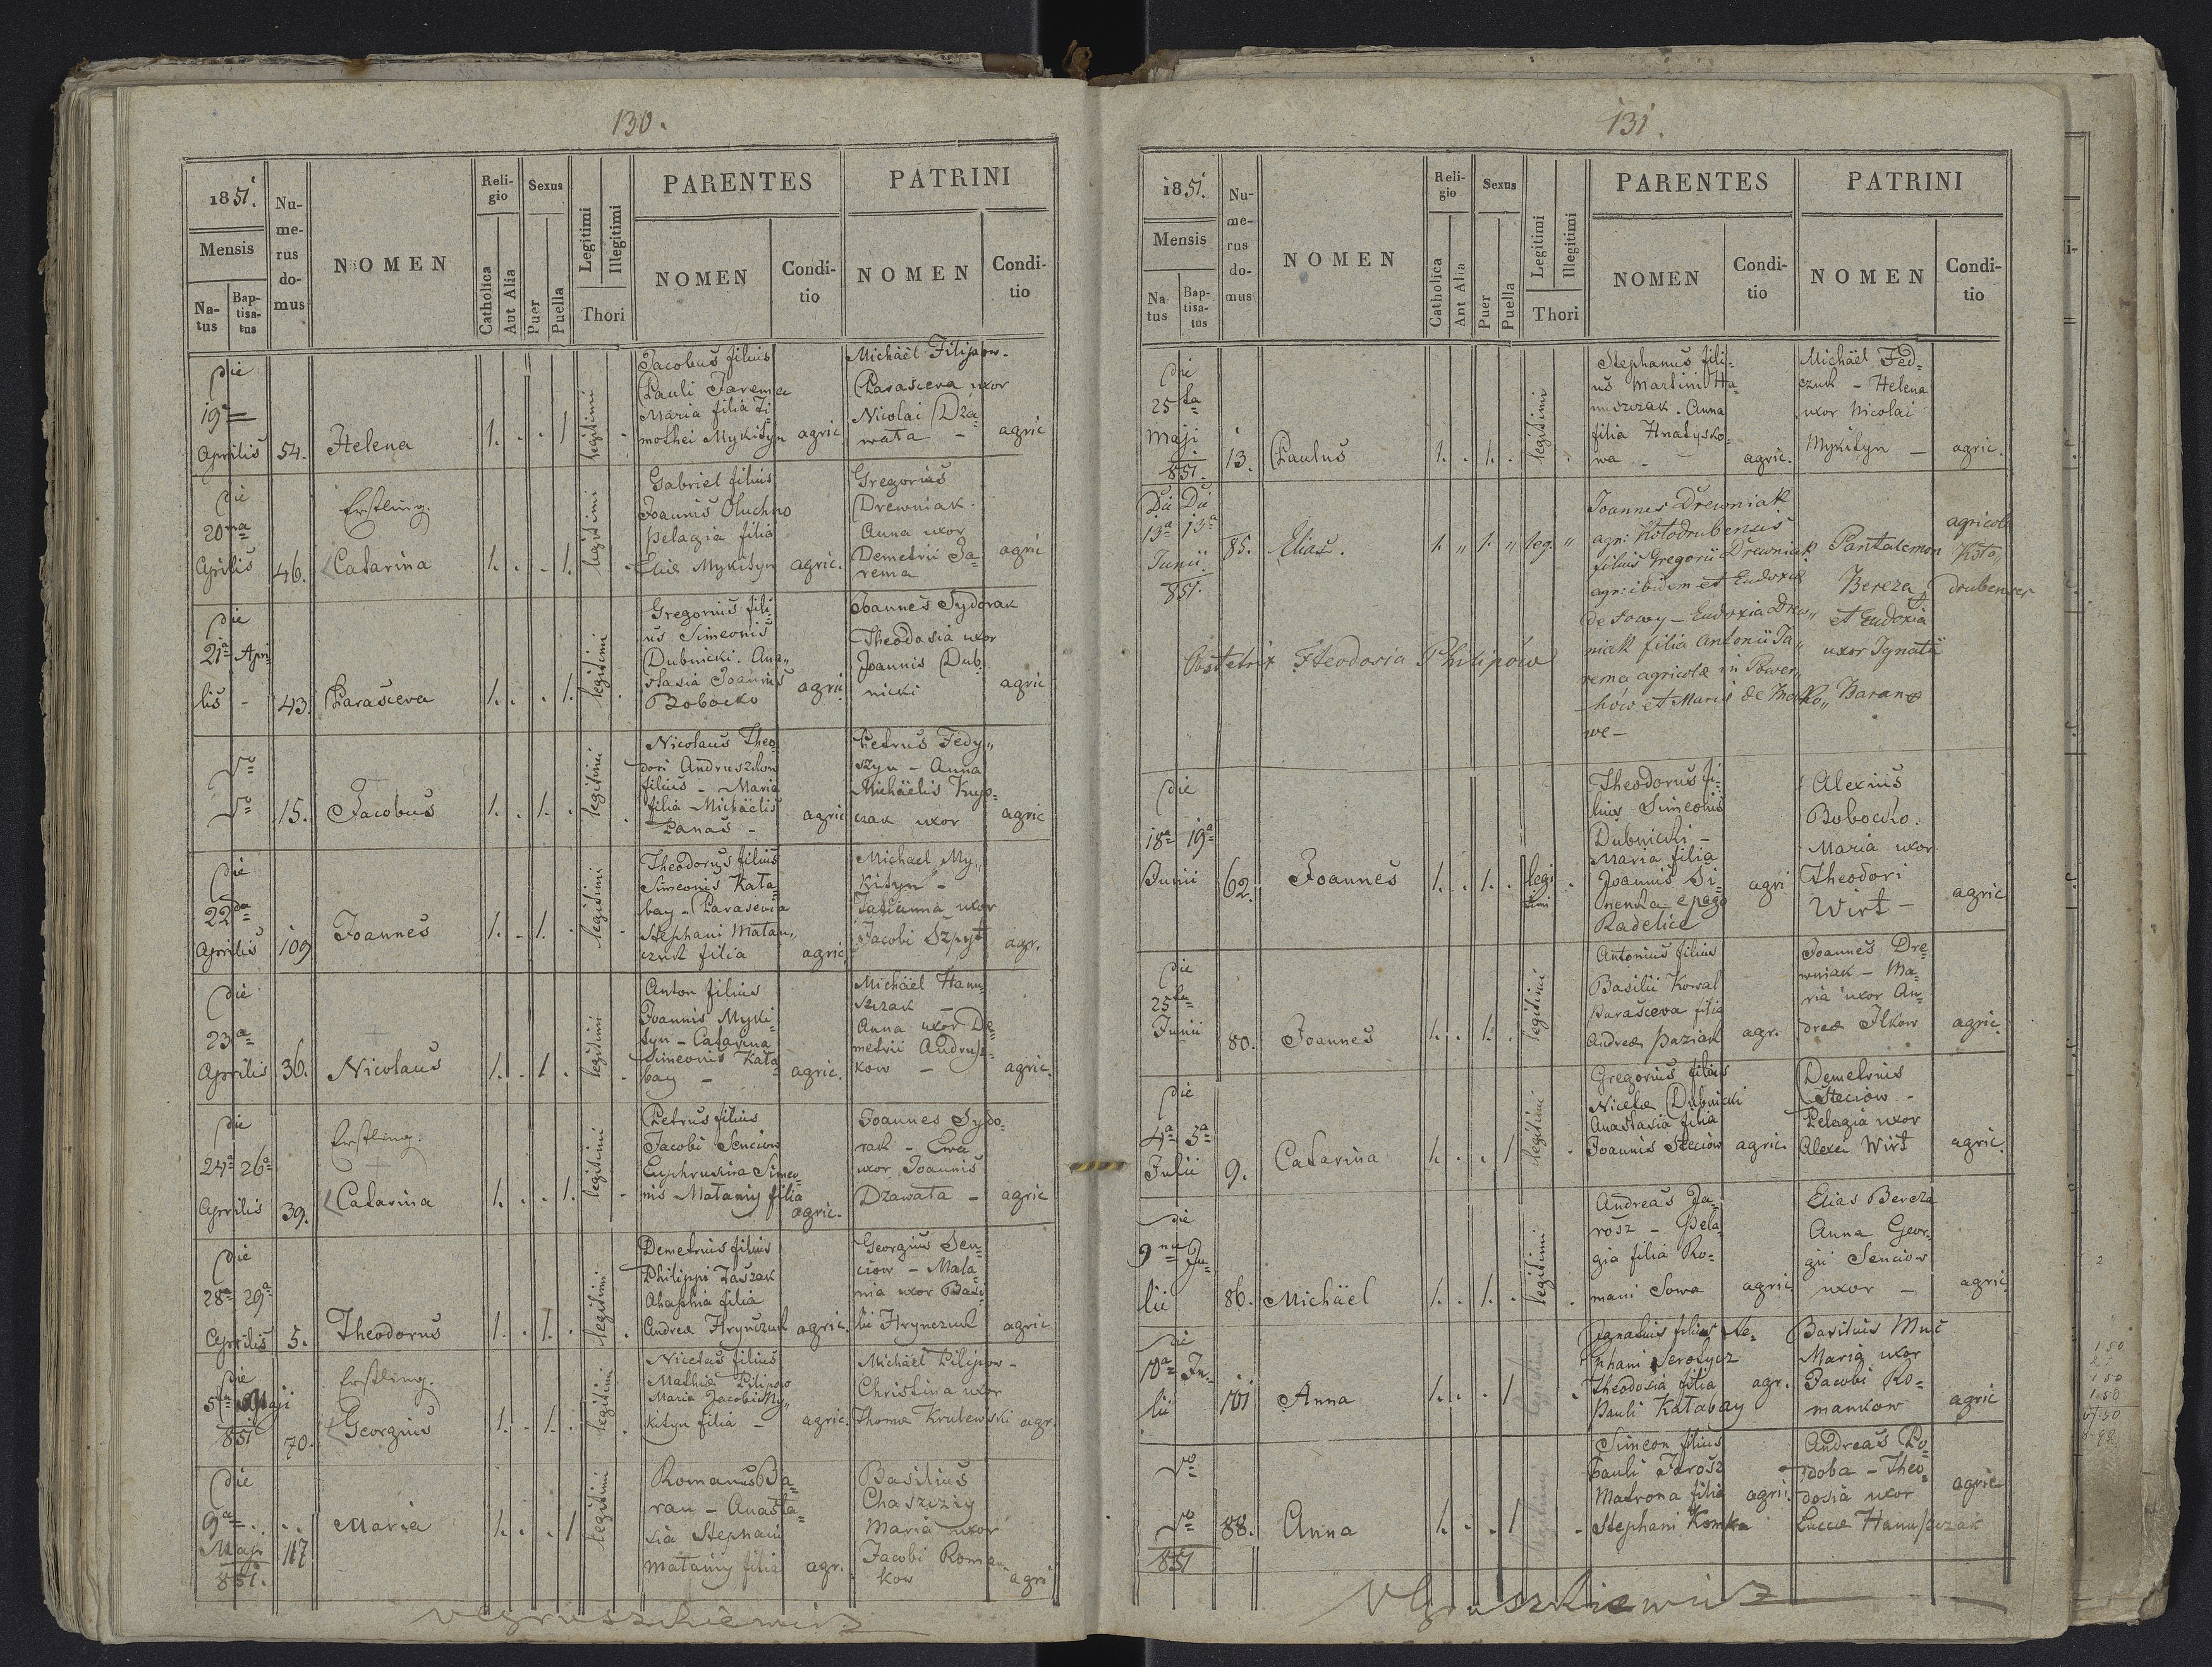 130.
1851.
Mensis
Na-
tus
Bap-
tisa-
tus
Nu-
me-
rus
do-
mus
NOMEN
Reli-
gio
Catholica
Aut Alia
Sexus
Puer
Puella
Legitimi
Illegitimi
Thori
PARENTES
NOMEN
Condi-
tio
PATRINI
NOMEN
Condi-
tio
Die
19a
Aprilis
54.
Helena
1. . . 1
legitimi
Jacobus filius
Pauli Jarema
Maria filia Ti
mothei Mykityn
agric
Michaël Filipow-
Parasceva uxor
Nicolai Dza
wata -
agric
Die
20ma
Aprilis
46.
Erstling.
Catarina
1. . . 1.
legitimi
Gabriel filius
Joannis Oluchno
Pelagia filia
Eliae Mykityn
agric.
Gregorius
Drewniak.
Anna uxor
Demetrii Ja=
rema
agric
Die
21a Apri
lis -
43.
Parasceva
1. . . 1.
legitimi
Gregorius fili=
us Simeonis
Dubnicki. Ana„
stasia Joannis
Bobocko
agric
Joannes Sydorak
Theodosia uxor
Joannis Dub=
nicki
agric
15.
Jacobus
1. . 1. .
legitimi
Nicolaus Theo
dori Andruszkow
filius - Maria
filia Michaëlis
Panas -
agric
Petrus Fedy„
szyn - Anna
Michaëlis
czak uxor
agric
Die
22da
Aprilis
109
Joannes
1. . 1. .
legitimi
Theodorus filius
Simeonis Kata
bay - Parascevia
Stephani Matan„
czuk filia
agric.
Michael My„
kityn -
Tatianna uxor
Jacobi Szpyt
agr.
Die
23a
Aprilis
36.
Nicolaus
1. . 1 .
legitimi
Anton filius
Joannis Myki=
tyn - Catarina
Simeonis Kata=
bay -
agric.
Michaël Hanu=
szczak -
Anna uxor De=
metrii Andrusz=
kow -
agric.
Die
24a 26a
Aprilis
39.
Erstling.
Catarina
1. . . 1.
legitimi
Petrus filius
Jacobi Senciow
Euphrusina Simeo=
nis - Mataniy filia
agric.
Joannes Sydo=
rak - Ewa
uxor Joannis
Dzawata -
agric
Die
28a 29a
Aprilis
5.
Theodorus
1. . 1. .
legitimi
Demetrius filius
Philippi Jaszak
Ahaphia filia
Andreae Hrynczuk
agric.
Georgius Sen=
ciow - Mala=
nia uxor Basi=
lii Hrynczuk
agric
Die
5ta Maji
851
70.
Erstling.
Georgius
1. . 1. .
legitimi
Nicetas filius
Mathiae Pilipow
Maria Jacobi My„
kityn filia -
agric.
Michaël Pilipow-
Christina uxor
Thomae Krulewski
agr.
Die
9a
Maji
851.
117
Maria
1. . . 1
legitimi
Romanus Ba=
ran - Anasta=
sia Stephani
Mataniy filia
agr.
Basilius
Chaszczzy
Maria uxor
Jacobi Roman
kow
agri
131.
1851.
Mensis
Na
tus
Bap-
tisa-
tus
Nu-
me-
rus
do-
mus
NOMEN
Reli-
gio
Catholica
Ant Alia
Sexus
Puer
Puella
Legitimi
Illegitimi
Thori
PARENTES
NOMEN
Condi-
tio
PATRINI
NOMEN
Condi-
tio
Die
25ta
Maji
851.
13.
Paulus
1. . 1. .
legitimi
Stephanus fili=
us Martini Ha
nuszczak. Anna
filia Hnatysko=
wa -
agric.
Michaël Fed=
czuk - Helena
uxor Nicolai
Mykityn -
agric.
Die Die
13a 13a
Junii
851.
85.
Elias.
1. „ 1. „ leg. „
Joannes Drewniak
agr: Kołodrubensis
filius Gregorii Drewniak
agr: ibidem et Eudoxiae
de Sowy - Eudoxia Drew„
niak filia Antonii Ja„
rema agricolae in Power„
chów et Mariae de
we -
Pantalemon
Bereza
et Eudoxia
uxor Ignatii
Baran
agricolae
Koło„
drubenses
Obstetrix Theodosia Philipow
Die
18a 19a
Junii
62.
Joannes
1. . 1. .
legi
timi
Theodorus fi=
lius Simeonis
Dubnicki -
Maria filia
Joannis Si=
nenka e pago
Radelice
agri
Alexius
Bobocko.
Maria uxor
Theodori
Wirt -
agric
Die
25ta
Junii
80.
Joannes
1. . 1. .
legitimi
Antonius filius
Basilii Kowal
Parasceva filia
Andreae Paziak
agr.
Joannes Dre=
wniak - Ma=
ria uxor An=
dreae Ilkow
agric
Die
4a 5a
Julii
9.
Catarina
1. . . 1
legitimi
Gregorius filius
Nicetae Dubnicki
Anastasia filia
Joannis Steciow
agric.
Demetrius
Steciow -
Pelagia uxor
Alexii Wirt
agric
Die
9na Ju=
lii
86.
Michäel
1. . 1. .
legitimi
Andreas Ja=
rosz - Pela
gia filia Ro=
mani Sowa
agric.
Elias Bereza
Anna Geor=
gii Senciow
uxor -
agric
Die
10a Ju=
lii
101
Anna
1. . . 1
legitimi
Ignatius filius Ste=
phani Serotycz
Theodosia filia
Pauli Katabay
agr.
Basilius Muc
Maria uxor
Jacobi Ro=
mankow
agric
851
88.
Anna
1. . . 1
legitimi
Simeon filius
Pauli Jarosz
Matrona filia
Stephani Komka
agric.
Andreas Po=
doba - Theo=
dosia uxor
Luccae Hanuszczak
agric